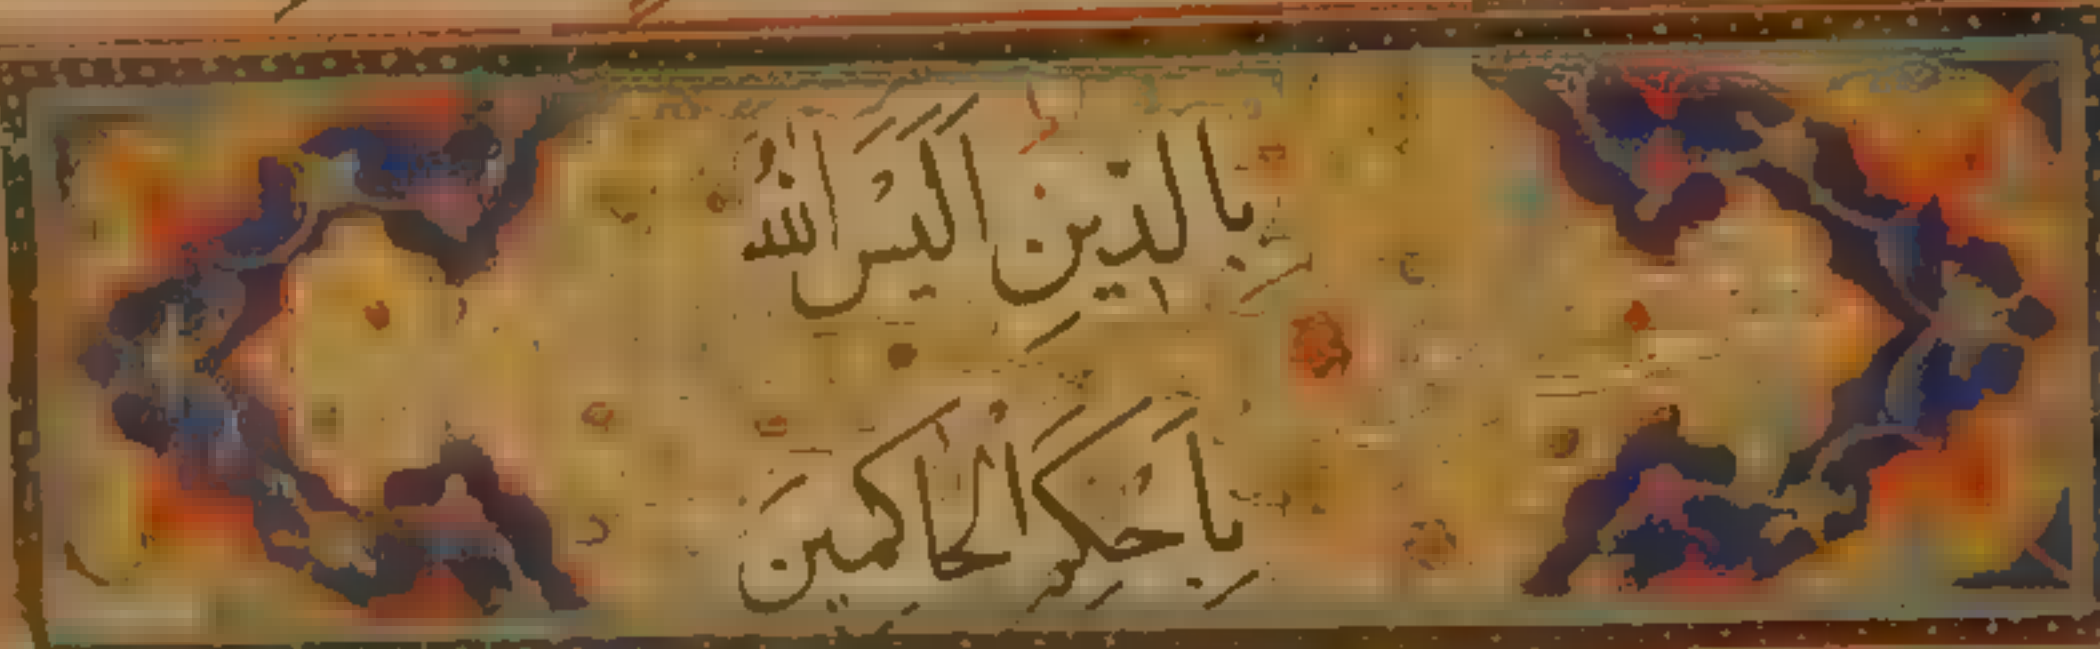 بِالدِّينِ اَلَيْسَ اللهُ
بِاَحْكَمِ الْحَاكِمِينَ